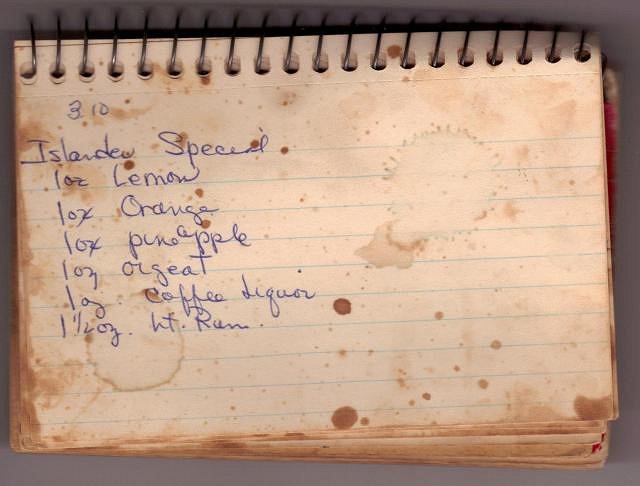 310
Islander Special
1oz Lemon
1oz Orange
1oz pineapple
1oz orgeat
1oz. coffee Liquor
1 1/2 oz. Lt. Rum.